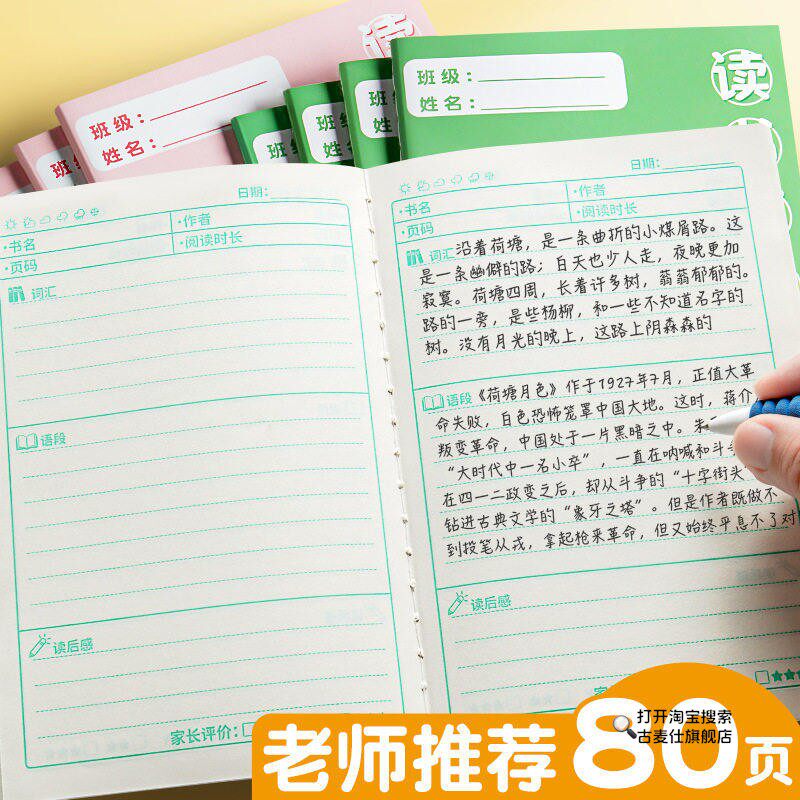 班级：
姓名：
班级：
姓名：
班
班
班级
姓名
班级
姓
读
读
日期：
·书名
·作者
·页码
·阅读时长
词汇
语段
读后感
家长评价：
日期：
·书名
·作者
·页码
·阅读时长
词汇
沿着荷塘，是一条曲折的小煤屑路。这
是一条幽僻的路；白天也少人走，夜晚更加
寂寞。荷塘四周，长着许多树，蓊蓊郁郁的。
路的一旁，是些杨柳，和一些不知道名字的
树。没有月光的晚上，这路上阴森森的
语段
《荷塘月色》作于1927年7月，正值大革
命失败，白色恐怖笼罩中国大地。这时，蒋介
叛变革命，中国处于一片黑暗之中。朱
“大时代中一名小卒”，一直在呐喊和斗争
在四一二政变之后，却从斗争的“十字街头
钻进古典文学的“象牙之塔”。但是作者既做不
到投笔从戎，拿起枪来革命，但又始终平息不了对
读后感
家
老师推荐80页
打开淘宝搜索
古麦仕旗舰店